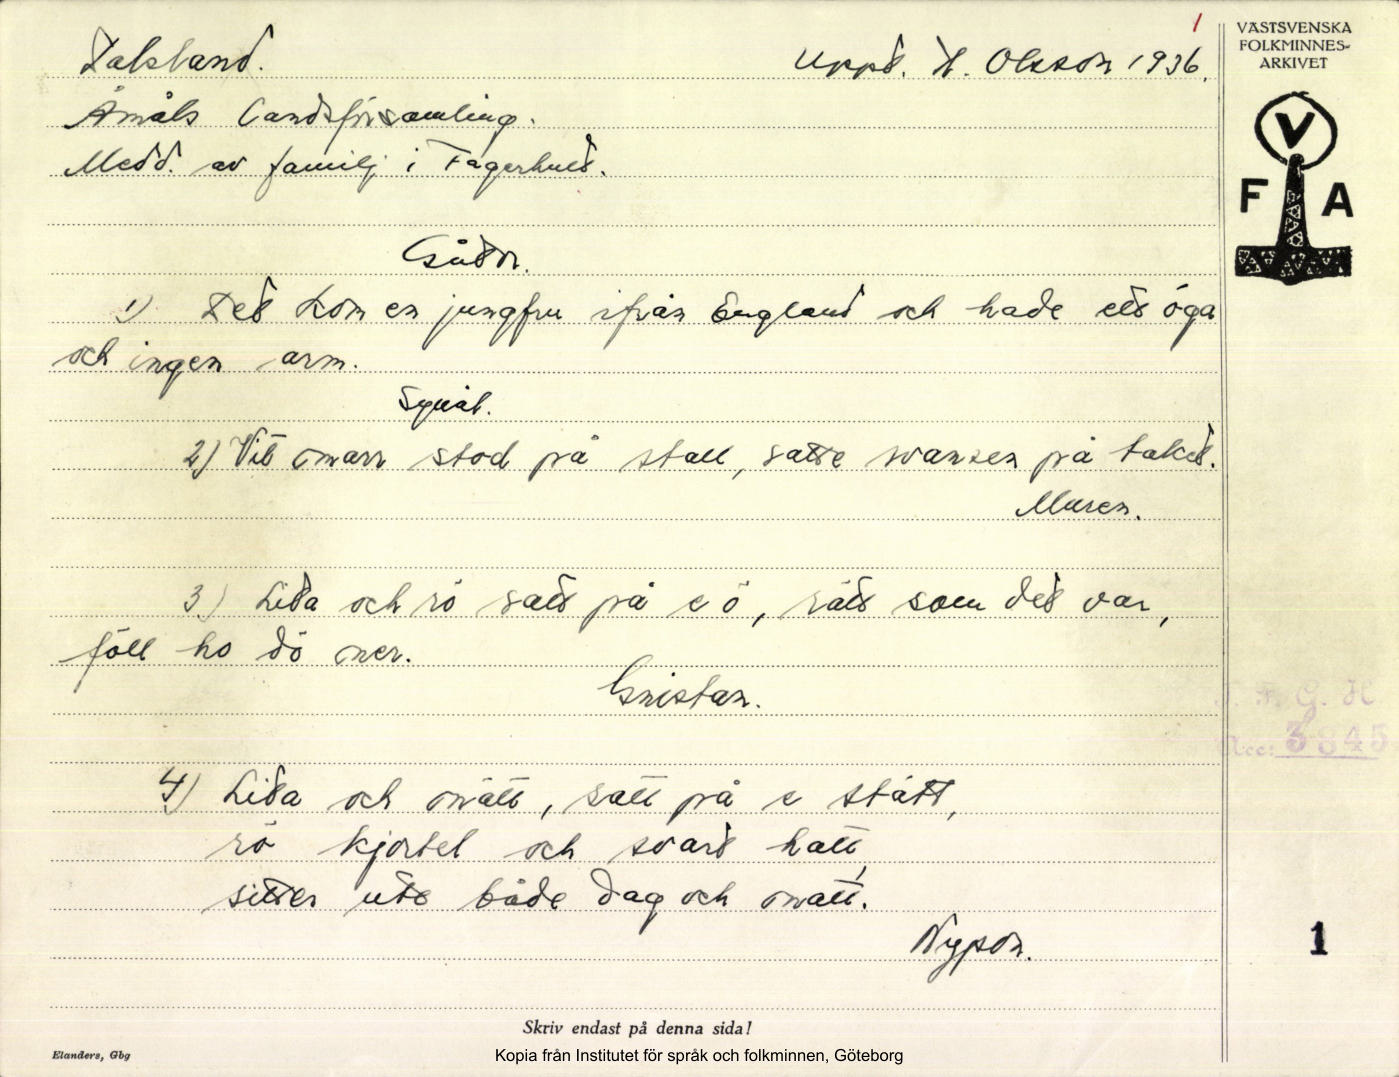 1
Dalsland. Uppt. H. Olsson 1936.
VÄSTSVENSKA
FOLKMINNES-
ARKIVET
V
F A
Åmåls landsförsamling.
Medd. av familj i Fagerhult.
Gåtor.
1) Det kom en jungfru ifrån England och hade ett öga
och ingen arm.
Synål.
2) Vit marr stod på stall, satte svansen på taket.
Muren.
3) Lita och rö satt på e ö, rätt som det var,
föll ho dö ner.
Gnistan.
4) Lita och nätt, satt på e slätt,
rö kjortel och svart hatt,
sitter ute både dag och natt.
Nypon.
I. F. G. H
Acc: 3845
1
Skriv endast på denna sida!
Elanders, Gbg
Kopia från Institutet för språk och folkminnen, Göteborg